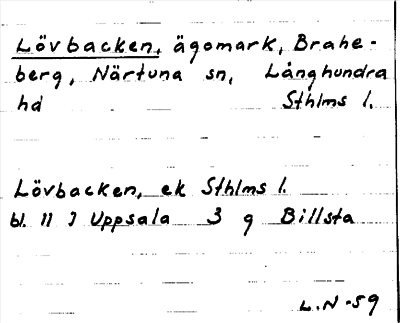 Lövbacken, ägomark, Brahe-
berg, Närtuna sn, Långhundra
hd Sthlms l.
Lövbacken, ek Sthlms l.
bl. 11 I Uppsala 3 g Billsta
L.N -59